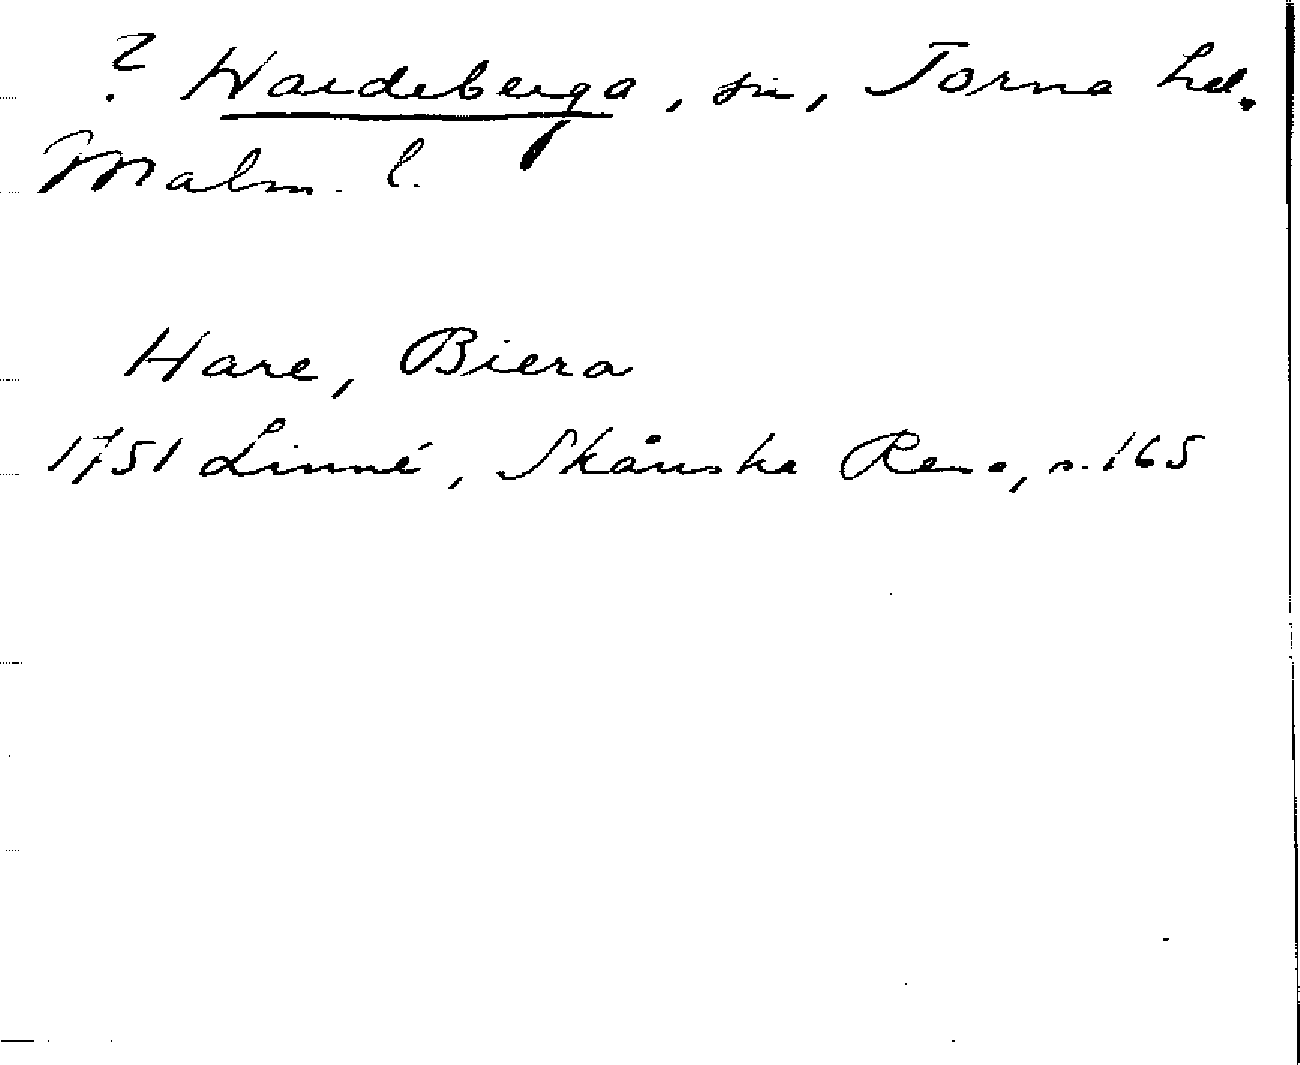 ? Hardeberga, sn, Torna hd.
Malm. l.
Hare, Biera
1751 Linné, Skånska Resa, s. 165